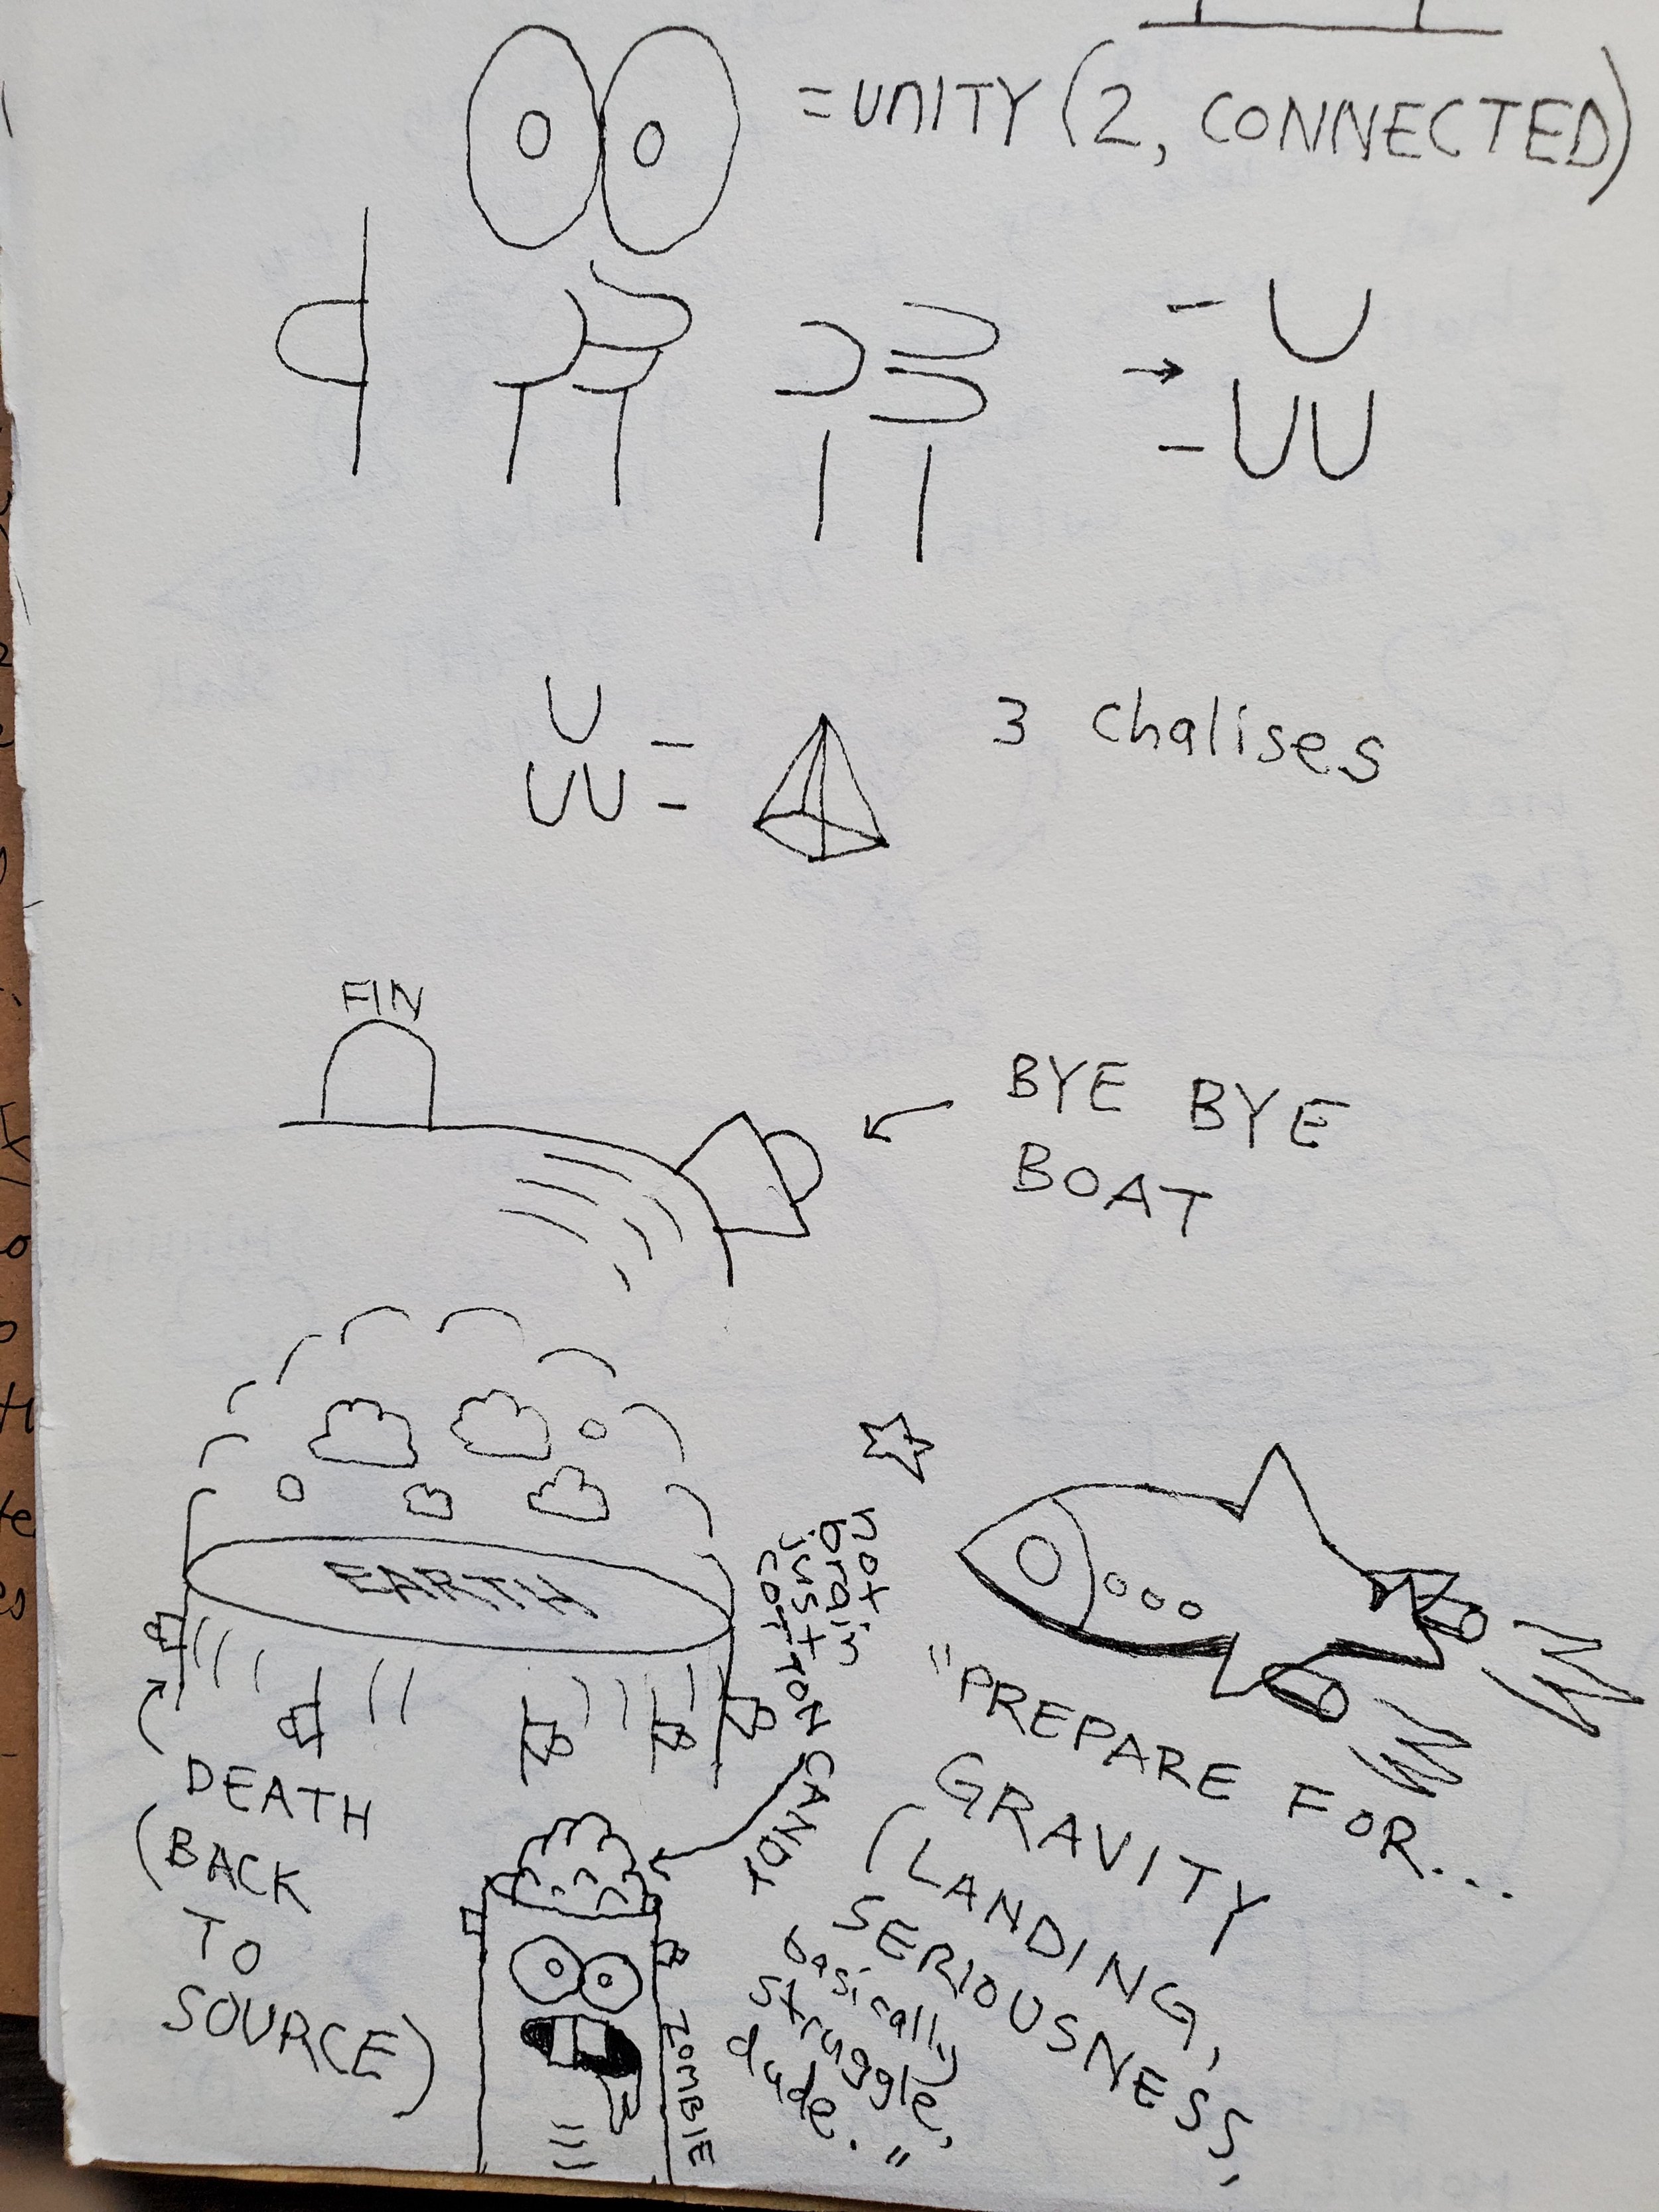 = UNITY (2, CONNECTED)
- U
→ UU
-
U -
UU -
3 chalises
FIN
BYE BYE
BOAT
EARTH
not in
brain
just
COTTON CANDY
DEATH
(BACK
TO
SOURCE)
"PREPARE FOR...
GRAVITY
(LANDING,
SERIOUSNESS,
basically
struggle,
dude."
ZOMBIE